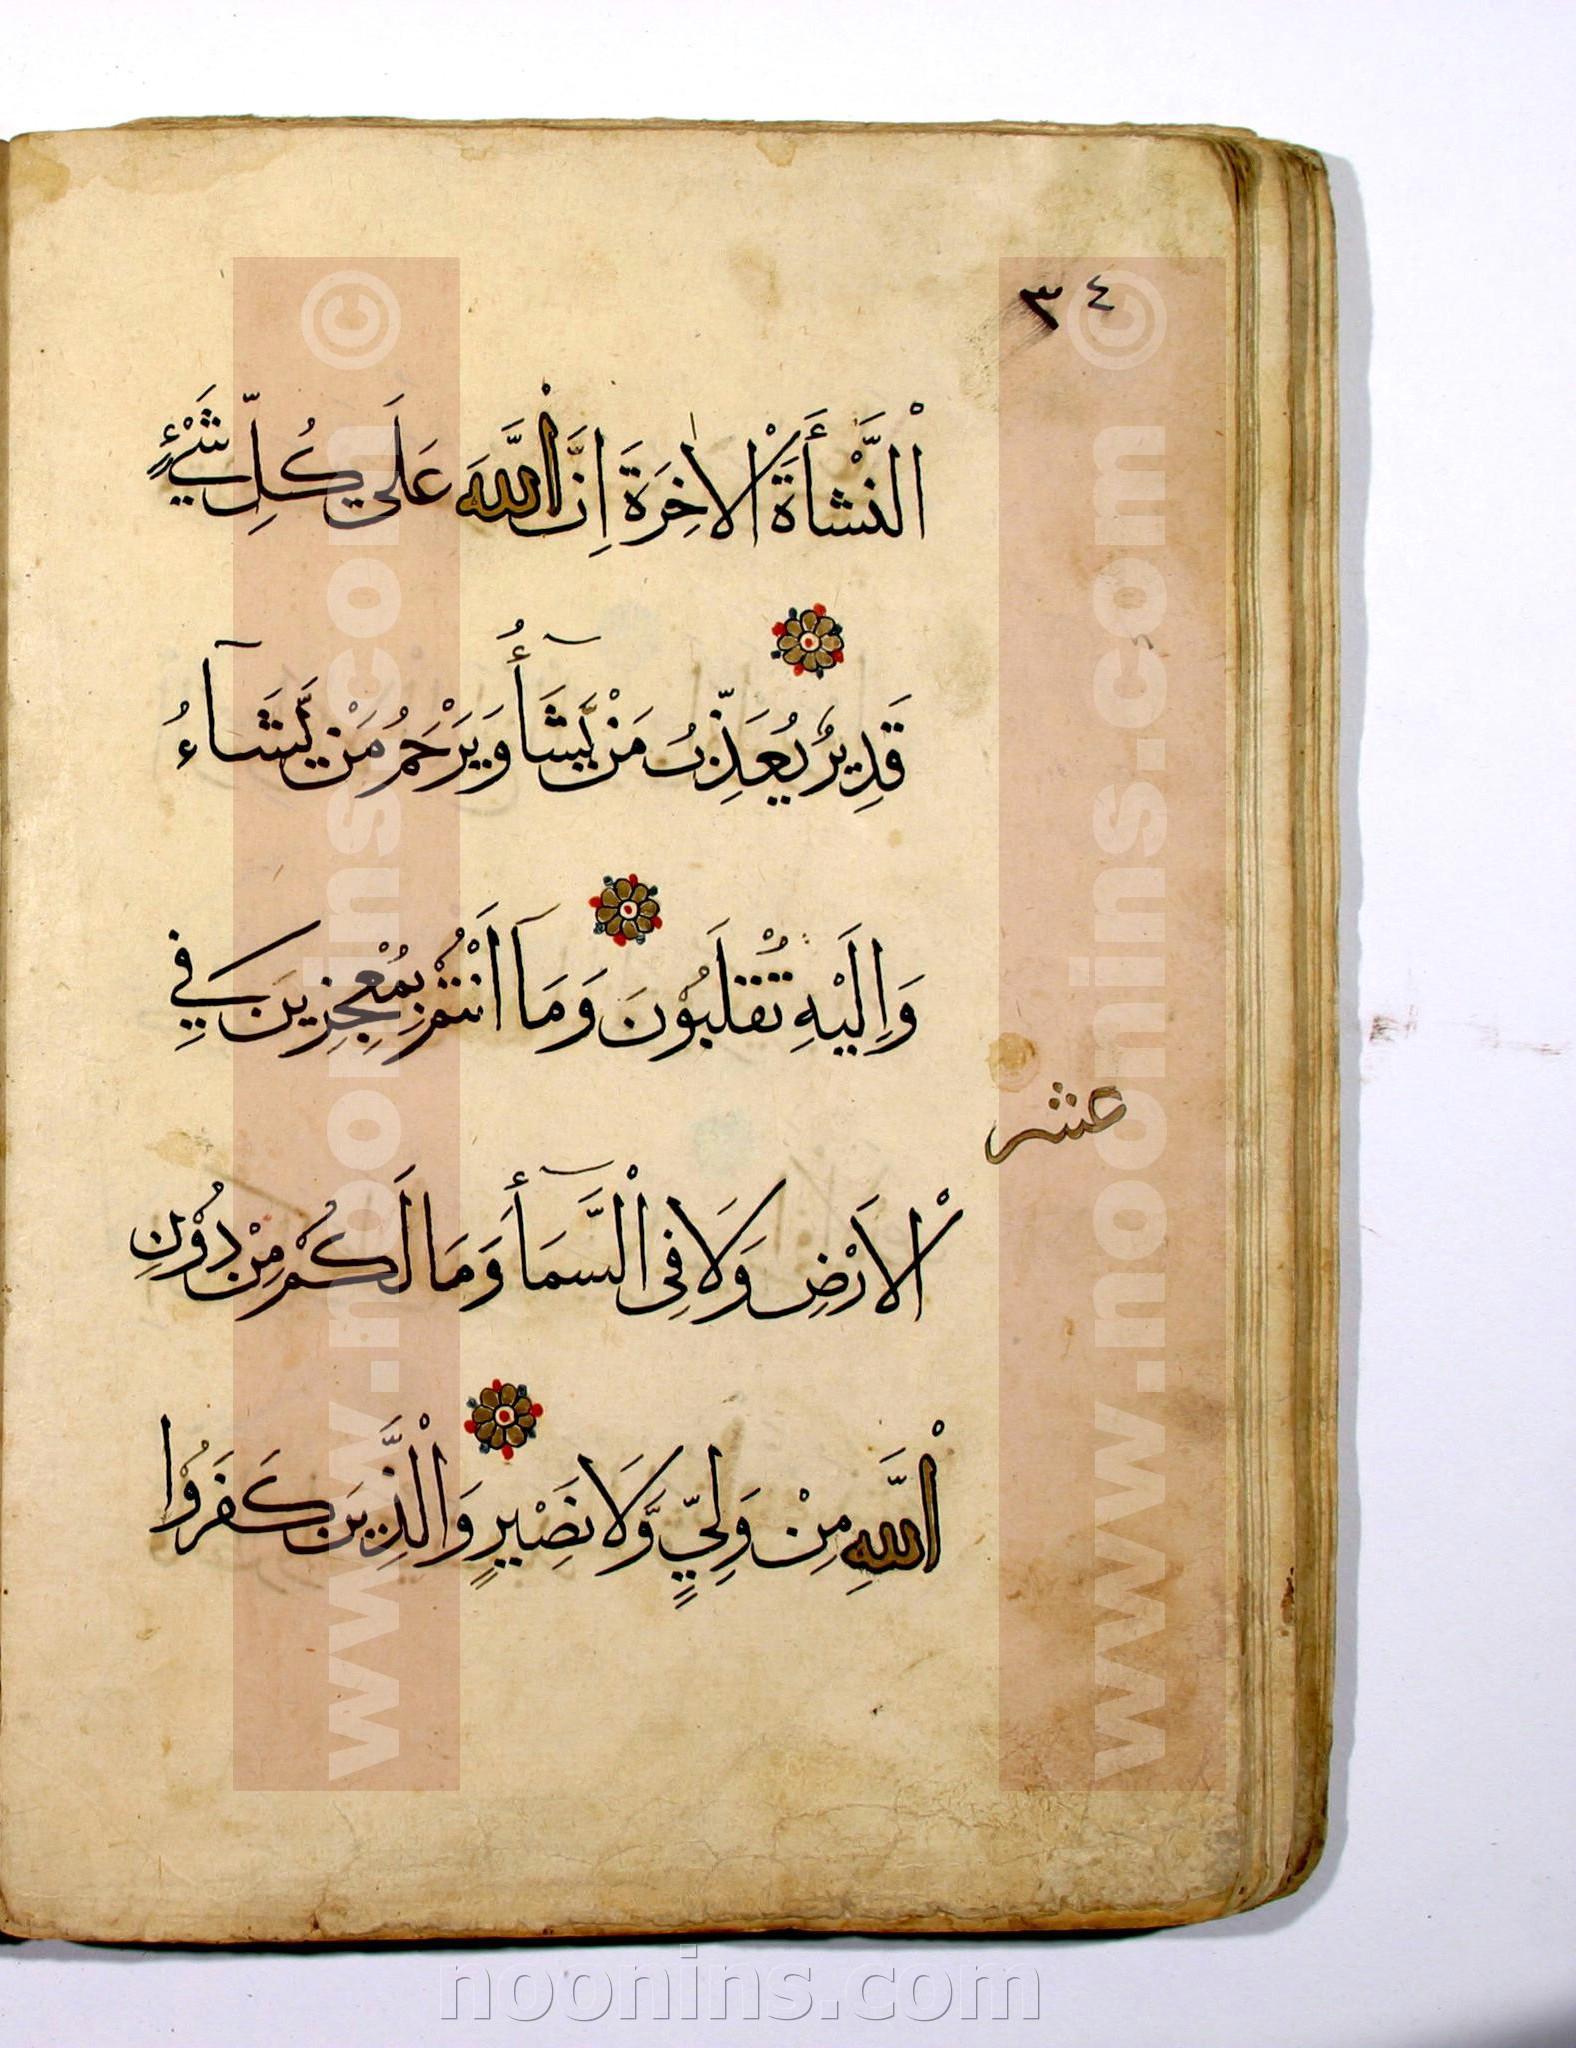 ٣٤
اَلنَّشْأَةَ الْاٰخِرَةَ اِنَّ اللَّهَ عَلَى كُلِّ شَيْءٍ
قَدِيرٌ يُعَذِّبُ مَنْ يَّشَآأُ وَيَرْحَمُ مَنْ يَّشَآءُ
وَاِلَيْهِ تُقْلَبُوْنَ وَمَآ اَنْتُمْ بِمُعْجِزِينَ فِي
عشر
الْاَرْضِ وَلَا فِى السَّمَآأِ وَمَا لَكُمْ مِنْ دُوْنِ
اللَّهِ مِنْ وَلِيٍّ وَّلَا نَصِيْرٍ وَالَّذِينَ كَفَرُوْا
www.noonins.com ©
www.noonins.com ©
noonins.com